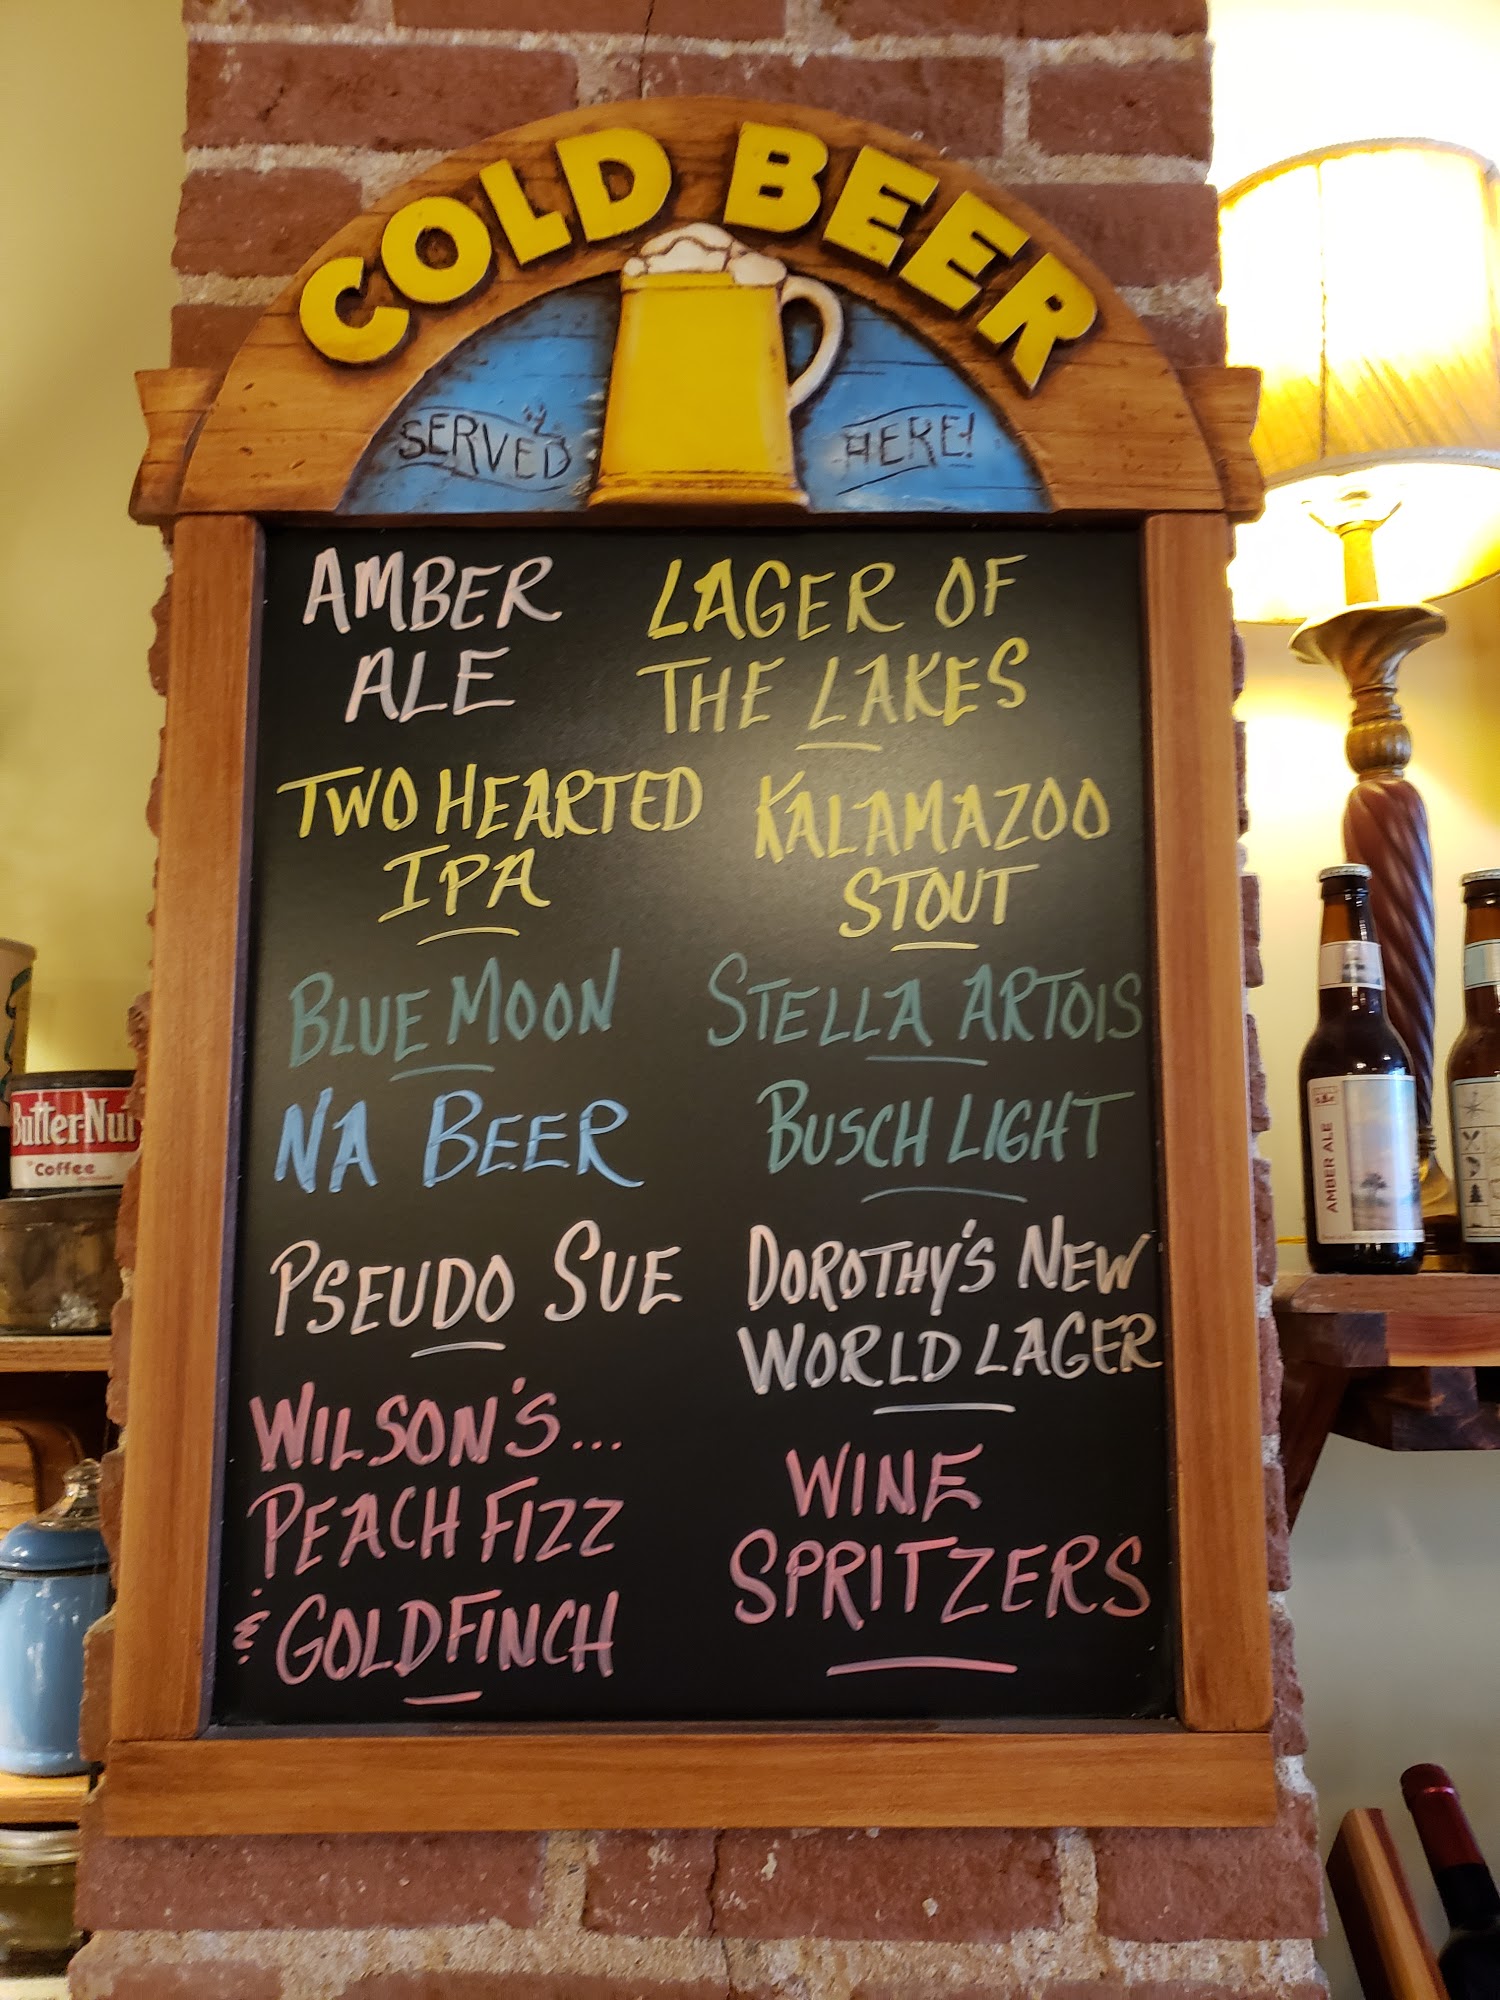 COLD BEER
SERVED HERE!
AMBER
ALE
LAGER OF
THE LAKES
TWO HEARTED
IPA
KALAMAZOO
STOUT
BLUE MOON
STELLA ARTOIS
NA BEER
BUSCH LIGHT
PSEUDO SUE
DOROTHY'S NEW
WORLD LAGER
WILSON'S...
PEACH FIZZ
& GOLDFINCH
WINE
SPRITZERS
Butter-Nut
Coffee
AMBER ALE